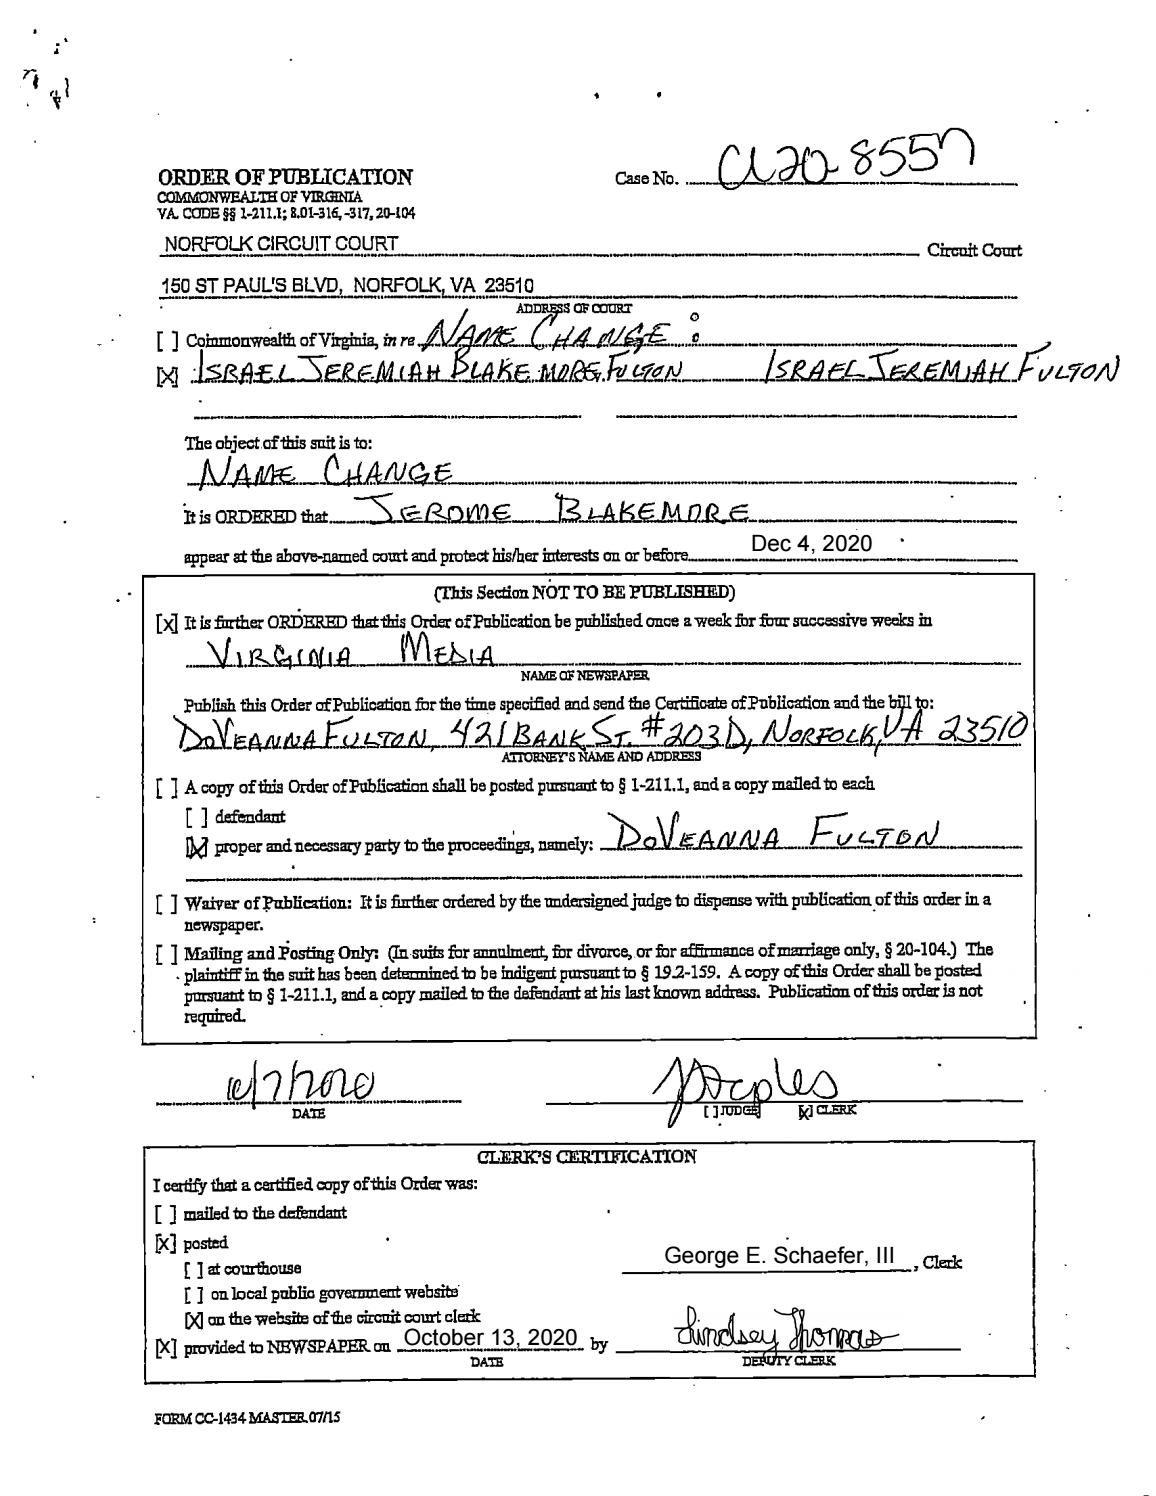 ORDER OF PUBLICATION
Case No. CL20-8557
COMMONWEALTH OF VIRGINIA
VA. CODE §§ 1-211.1; 8.01-316, -317, 20-104
NORFOLK CIRCUIT COURT Circuit Court
150 ST PAUL'S BLVD, NORFOLK, VA 23510
ADDRESS OF COURT
[ ] Commonwealth of Virginia, in re NAME CHANGE:
[X] ISRAEL JEREMIAH BLAKEMORE FULTON ISRAEL JEREMIAH FULTON
The object of this suit is to:
NAME CHANGE
It is ORDERED that JEROME BLAKEMORE
appear at the above-named court and protect his/her interests on or before Dec 4, 2020
(This Section NOT TO BE PUBLISHED)
[X] It is further ORDERED that this Order of Publication be published once a week for four successive weeks in
VIRGINIA MEDIA
NAME OF NEWSPAPER
Publish this Order of Publication for the time specified and send the Certificate of Publication and the bill to:
DOVEANNA FULTON, 421 BANK ST. #203D, NORFOLK, VA 23510
ATTORNEY'S NAME AND ADDRESS
[ ] A copy of this Order of Publication shall be posted pursuant to § 1-211.1, and a copy mailed to each
[ ] defendant
[X] proper and necessary party to the proceedings, namely: DOVEANNA FULTON
[ ] Waiver of Publication: It is further ordered by the undersigned judge to dispense with publication of this order in a
newspaper.
[ ] Mailing and Posting Only: (In suits for annulment, for divorce, or for affirmance of marriage only, § 20-104.) The
plaintiff in the suit has been determined to be indigent pursuant to § 19.2-159. A copy of this Order shall be posted
pursuant to § 1-211.1, and a copy mailed to the defendant at his last known address. Publication of this order is not
required.
10/7/2020
DATE
[ ] JUDGE [X] CLERK
CLERK'S CERTIFICATION
I certify that a certified copy of this Order was:
[ ] mailed to the defendant
[X] posted
George E. Schaefer, III, Clerk
[ ] at courthouse
[ ] on local public government website
[X] on the website of the circuit court clerk
[X] provided to NEWSPAPER on October 13, 2020 by Lindsey Thomas
DATE DEPUTY CLERK
FORM CC-1434 MASTER 07/15